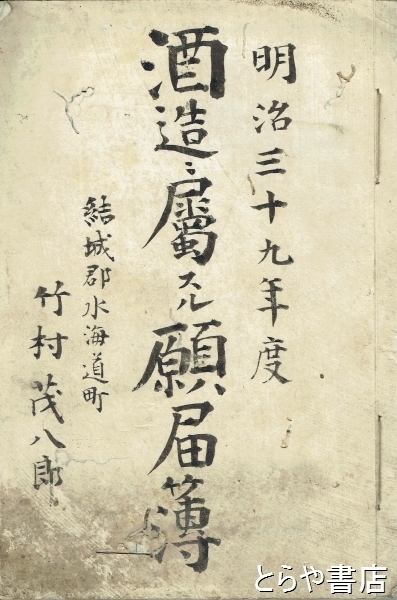 明治三十九年度
酒造ニ屬スル願届簿
結城郡水海道町
竹村茂八郎
とらや書店